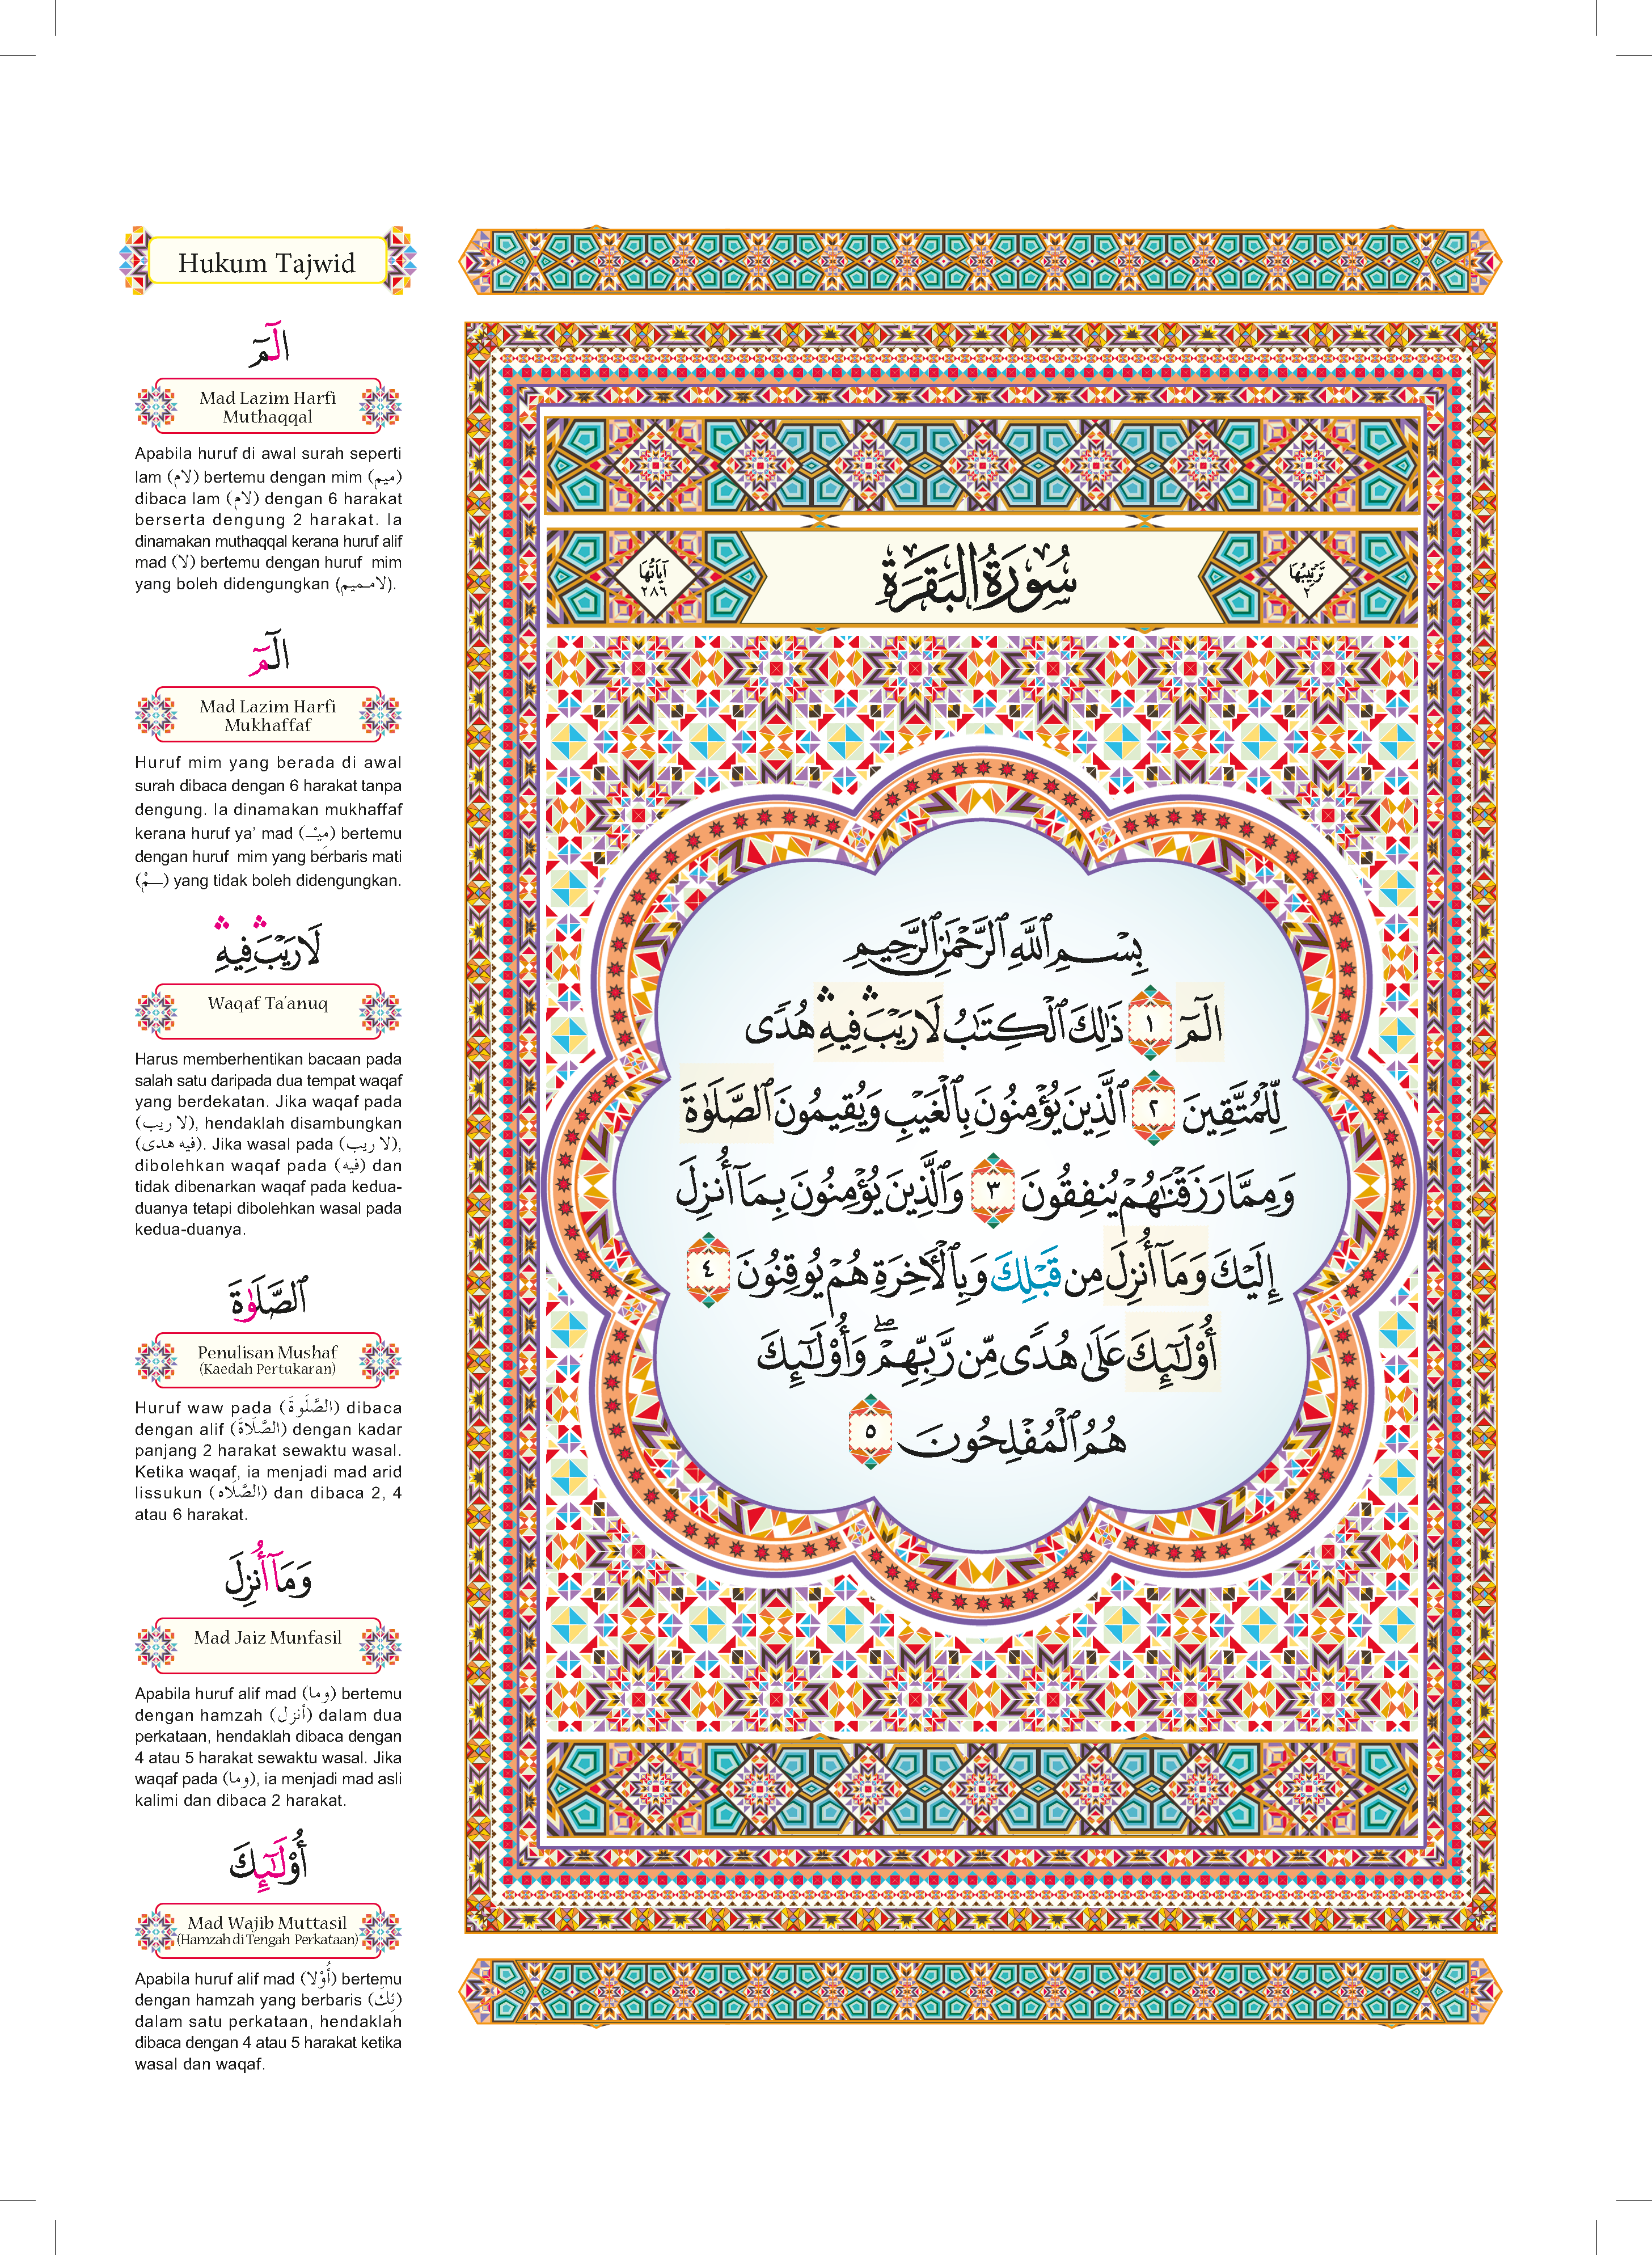 Hukum Tajwid
الٓمٓ
Mad Lazim Harfi
Muthaqqal
Apabila huruf di awal surah seperti
lam (لام) bertemu dengan mim (ميم)
dibaca lam (لام) dengan 6 harakat
berserta dengung 2 harakat. Ia
dinamakan muthaqqal kerana huruf alif
mad (لا) bertemu dengan huruf mim
yang boleh didengungkan (لامـميم).
الٓمٓ
Mad Lazim Harfi
Mukhaffaf
Huruf mim yang berada di awal
surah dibaca dengan 6 harakat tanpa
dengung. Ia dinamakan mukhaffaf
kerana huruf ya’ mad (مِيْـ) bertemu
dengan huruf mim yang berbaris mati
(ـمْ) yang tidak boleh didengungkan.
لَا رَيْبَۛ فِيهِۛ
Waqaf Ta’anuq
Harus memberhentikan bacaan pada
salah satu daripada dua tempat waqaf
yang berdekatan. Jika waqaf pada
(لا ريب), hendaklah disambungkan
(فيه هدى). Jika wasal pada (لا ريب),
dibolehkan waqaf pada (فيه) dan
tidak dibenarkan waqaf pada kedua-
duanya tetapi dibolehkan wasal pada
kedua-duanya.
ٱلصَّلَوٰةَ
Penulisan Mushaf
(Kaedah Pertukaran)
Huruf waw pada (الصَّلَوةَ) dibaca
dengan alif (الصَّلَاةَ) dengan kadar
panjang 2 harakat sewaktu wasal.
Ketika waqaf, ia menjadi mad arid
lissukun (الصَّلَاه) dan dibaca 2, 4
atau 6 harakat.
وَمَآ أُنزِلَ
Mad Jaiz Munfasil
Apabila huruf alif mad (وما) bertemu
dengan hamzah (أنزل) dalam dua
perkataan, hendaklah dibaca dengan
4 atau 5 harakat sewaktu wasal. Jika
waqaf pada (وما), ia menjadi mad asli
kalimi dan dibaca 2 harakat.
أُوْلَٰٓئِكَ
Mad Wajib Muttasil
(Hamzah di Tengah Perkataan)
Apabila huruf alif mad (أُوْلا) bertemu
dengan hamzah yang berbaris (ئِكَ)
dalam satu perkataan, hendaklah
dibaca dengan 4 atau 5 harakat ketika
wasal dan waqaf.
تَرْتِيبُهَا
٢
سُورَةُ البَقَرَةِ
آيَاتُهَا
٢٨٦
بِسْمِ ٱللَّهِ ٱلرَّحْمَٰنِ ٱلرَّحِيمِ
الٓمٓ ١ ذَٰلِكَ ٱلْكِتَٰبُ لَا رَيْبَۛ فِيهِۛ هُدًى
لِّلْمُتَّقِينَ ٢ ٱلَّذِينَ يُؤْمِنُونَ بِٱلْغَيْبِ وَيُقِيمُونَ ٱلصَّلَوٰةَ
وَمِمَّا رَزَقْنَٰهُمْ يُنفِقُونَ ٣ وَٱلَّذِينَ يُؤْمِنُونَ بِمَآ أُنزِلَ
إِلَيْكَ وَمَآ أُنزِلَ مِن قَبْلِكَ وَبِٱلْأَخِرَةِ هُمْ يُوقِنُونَ ٤
أُوْلَٰٓئِكَ عَلَىٰ هُدًى مِّن رَّبِّهِمْۖ وَأُوْلَٰٓئِكَ
هُمُ ٱلْمُفْلِحُونَ ٥